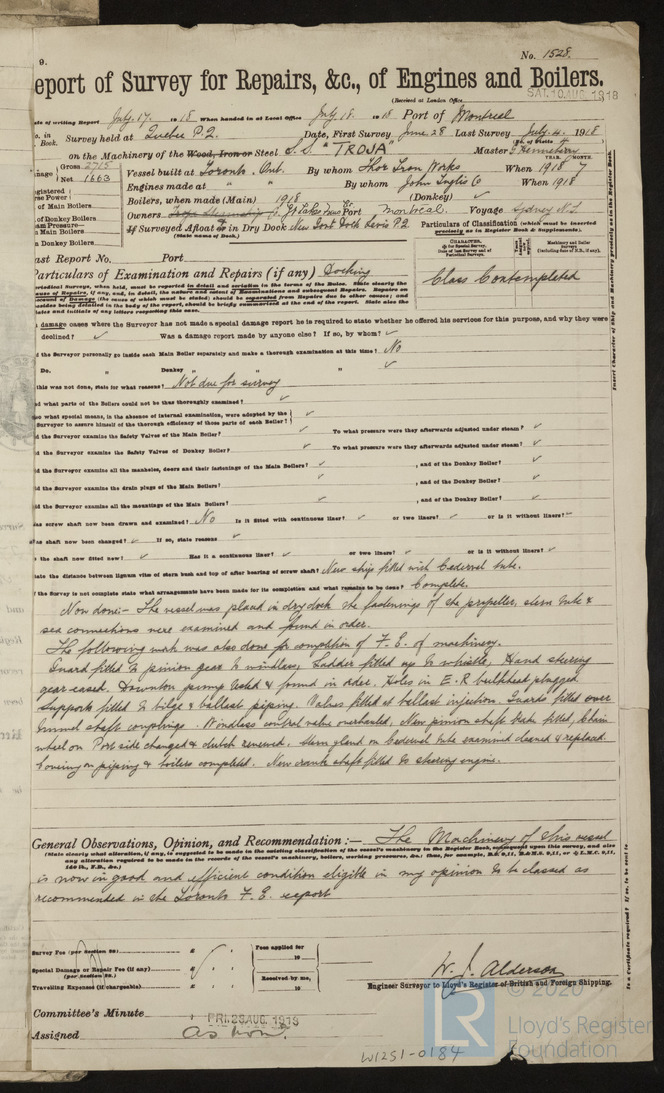 9.
No. 1528.
eport of Survey for Repairs, &c., of Engines and Boilers.
(Received at London Office
SAT. 10 AUG. 1918
ate of writing Report July. 17. 1918 When handed in at Local Office July 18. 1918 Port of Montreal
o. in Book. Survey held at Quebec P.Q. Date, First Survey June 28 Last Survey July. 4. 1918
(No. of Visits 7
on the Machinery of the Wood, Iron or Steel S.S. "TROJA" Master
Gross 2715
Net 1663
Vessel built at Toronto. Ont. By whom Thor Iron Works When 1918 7
YEAR. MONTH.
Engines made at " " By whom John Inglis Co When 1918
Boilers, when made (Main) 1918 (Donkey) ✓
Owners Port Montreal. Voyage Sydney N.S.
If Surveyed Afloat or in Dry Dock New Govt Dock Levis P.Q.
(State name of Dock.)
Particulars of Classification (which must be inserted precisely as in Register Book & Supplements).
egistered
rse Power
of Main Boilers
of Donkey Boilers
am Pressure—
Main Boilers
Donkey Boilers
ast Report No. Port
Particulars of Examination and Repairs (if any) Docking
Class Contemplated
damage cases where the Surveyor has not made a special damage report he is required to state whether he offered his services for this purpose, and why they were
declined? ✓ Was a damage report made by anyone else? If so, by whom? ✓
d the Surveyor personally go inside each Main Boiler separately and make a thorough examination at this time? No
Do. " Donkey " " " ✓
this was not done, state for what reasons? Not due for survey
d what parts of the Boilers could not be thus thoroughly examined? ✓
so what special means, in the absence of internal examination, were adopted by the
Surveyor to assure himself of the thorough efficiency of those parts of each Boiler? ✓
d the Surveyor examine the Safety Valves of the Main Boiler? ✓ To what pressure were they afterwards adjusted under steam? ✓
d the Surveyor examine the Safety Valves of Donkey Boiler? ✓ To what pressure were they afterwards adjusted under steam? ✓
d the Surveyor examine all the manholes, doors and their fastenings of the Main Boilers? ✓ , and of the Donkey Boiler? ✓
d the Surveyor examine the drain plugs of the Main Boilers? ✓ , and of the Donkey Boiler? ✓
d the Surveyor examine all the mountings of the Main Boilers? ✓ , and of the Donkey Boiler? ✓
as screw shaft now been drawn and examined? No Is it fitted with continuous liner? ✓ or two liners? ✓ or is it without liners? ✓
as shaft now been changed? ✓ If so, state reasons ✓
the shaft now fitted new? ✓ Has it a continuous liner? ✓ or two liners? ✓ or is it without liners? ✓
tate the distance between lignum vitæ of stern bush and top of after bearing of screw shaft? New ship fitted with Cederval tube.
the Survey is not complete state what arrangements have been made for its completion and what remains to be done? Complete.
Now done:- The vessel was placed in dry dock the fastenings of the propeller, stern tube &
sea connections were examined and found in order.
The following work was also done for completion of F.E. of machinery.
Guard fitted to pinion gear to windlass, Ladder fitted up to whistle, Hand steering
gear eased. Downton pump tested & found in order. Holes in E.R bulkhead plugged.
Supports fitted to bilge & ballast piping. Valves fitted at ballast injection. Guards fitted over
tunnel shaft couplings. Windlass control valve overhauled, New pinion shaft fitted, Chain
wheel on Port side changed & clutch renewed. Stern gland on Cederval tube examined cleaned & replaced.
Covering on piping & boilers completed. New crank shaft fitted to steering engine.
General Observations, Opinion, and Recommendation :— The Machinery of this vessel
(State clearly what alteration, if any, is suggested to be made in the existing classification of the vessel's machinery in the Register Book, consequent upon this survey, and also
any alteration required to be made in the records of the vessel's machinery, boilers, working pressures, &c.;
is now in good and efficient condition eligible in my opinion to be classed as
recommended in the Toronto F.E. report
Survey Fee (per Section 28)
Special Damage or Repair Fee (if any)
(per Section 28.)
Travelling Expenses (if chargeable)
Fees applied for
19
Received by me,
19
W. J. Alderson
Engineer Surveyor to Lloyd's Register of British and Foreign Shipping.
Committee's Minute FRI. 23 AUG. 1918
Assigned as now.
© 2020
Lloyd's Register
Foundation
W1251-0184